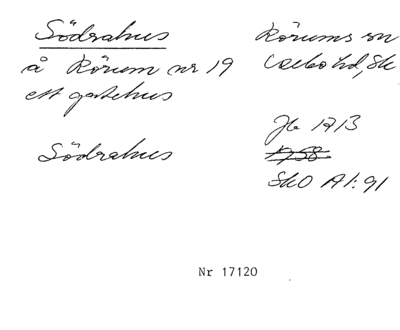 Södrahus
å Rörum nr 19
ett gatehus
Södrahus
Rörums sn
Jb 1713
1758
SkO A1:91
Nr 17120